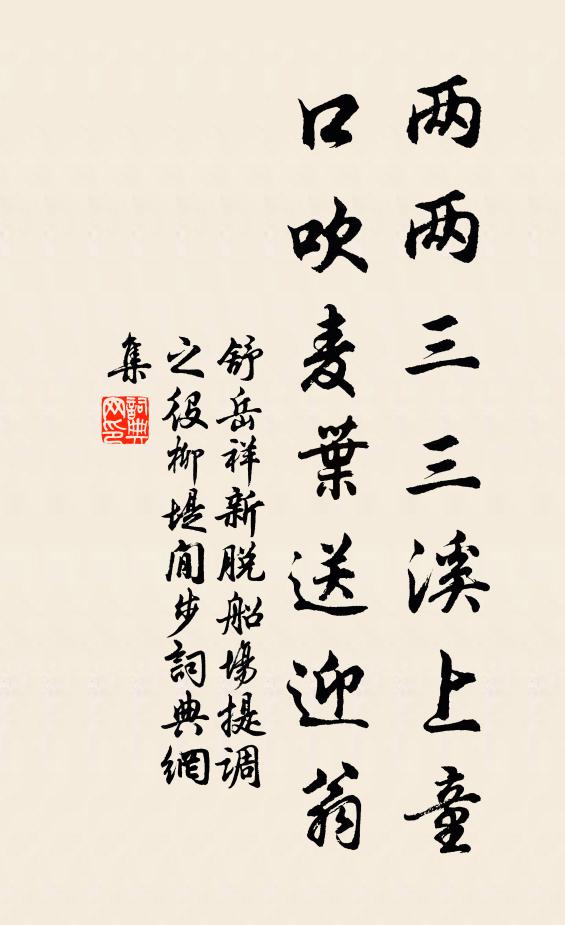 两两三三溪上童
口吹麦葉送迎翁
舒岳祥新脱船場提调
之役柳堤闲步詞典網
集
詞典
网印